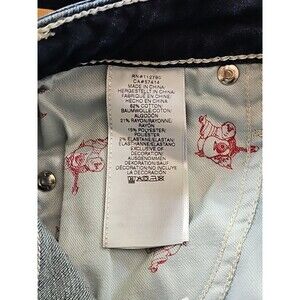 RN#112790
CA#57414
MADE IN CHINA/
HERGESTELLT IN CHINA/
FABRIQUÉ EN CHINE/
HECHO EN CHINA
62% COTTON/
BAUMWOLLE/COTON/
ALGODON
21% RAYON/RAYONNE/
RAYON
15% POLYESTER/
POLYESTER
2% ELASTANE/ELASTAN/
ELASTHANNE/ELASTANO
EXCLUSIVE OF
DECORATION/
AUSGENOMMEN
DEKORATION/SAUF
DÉCORATION/NO INCLUYE
LA DECORACIÓN